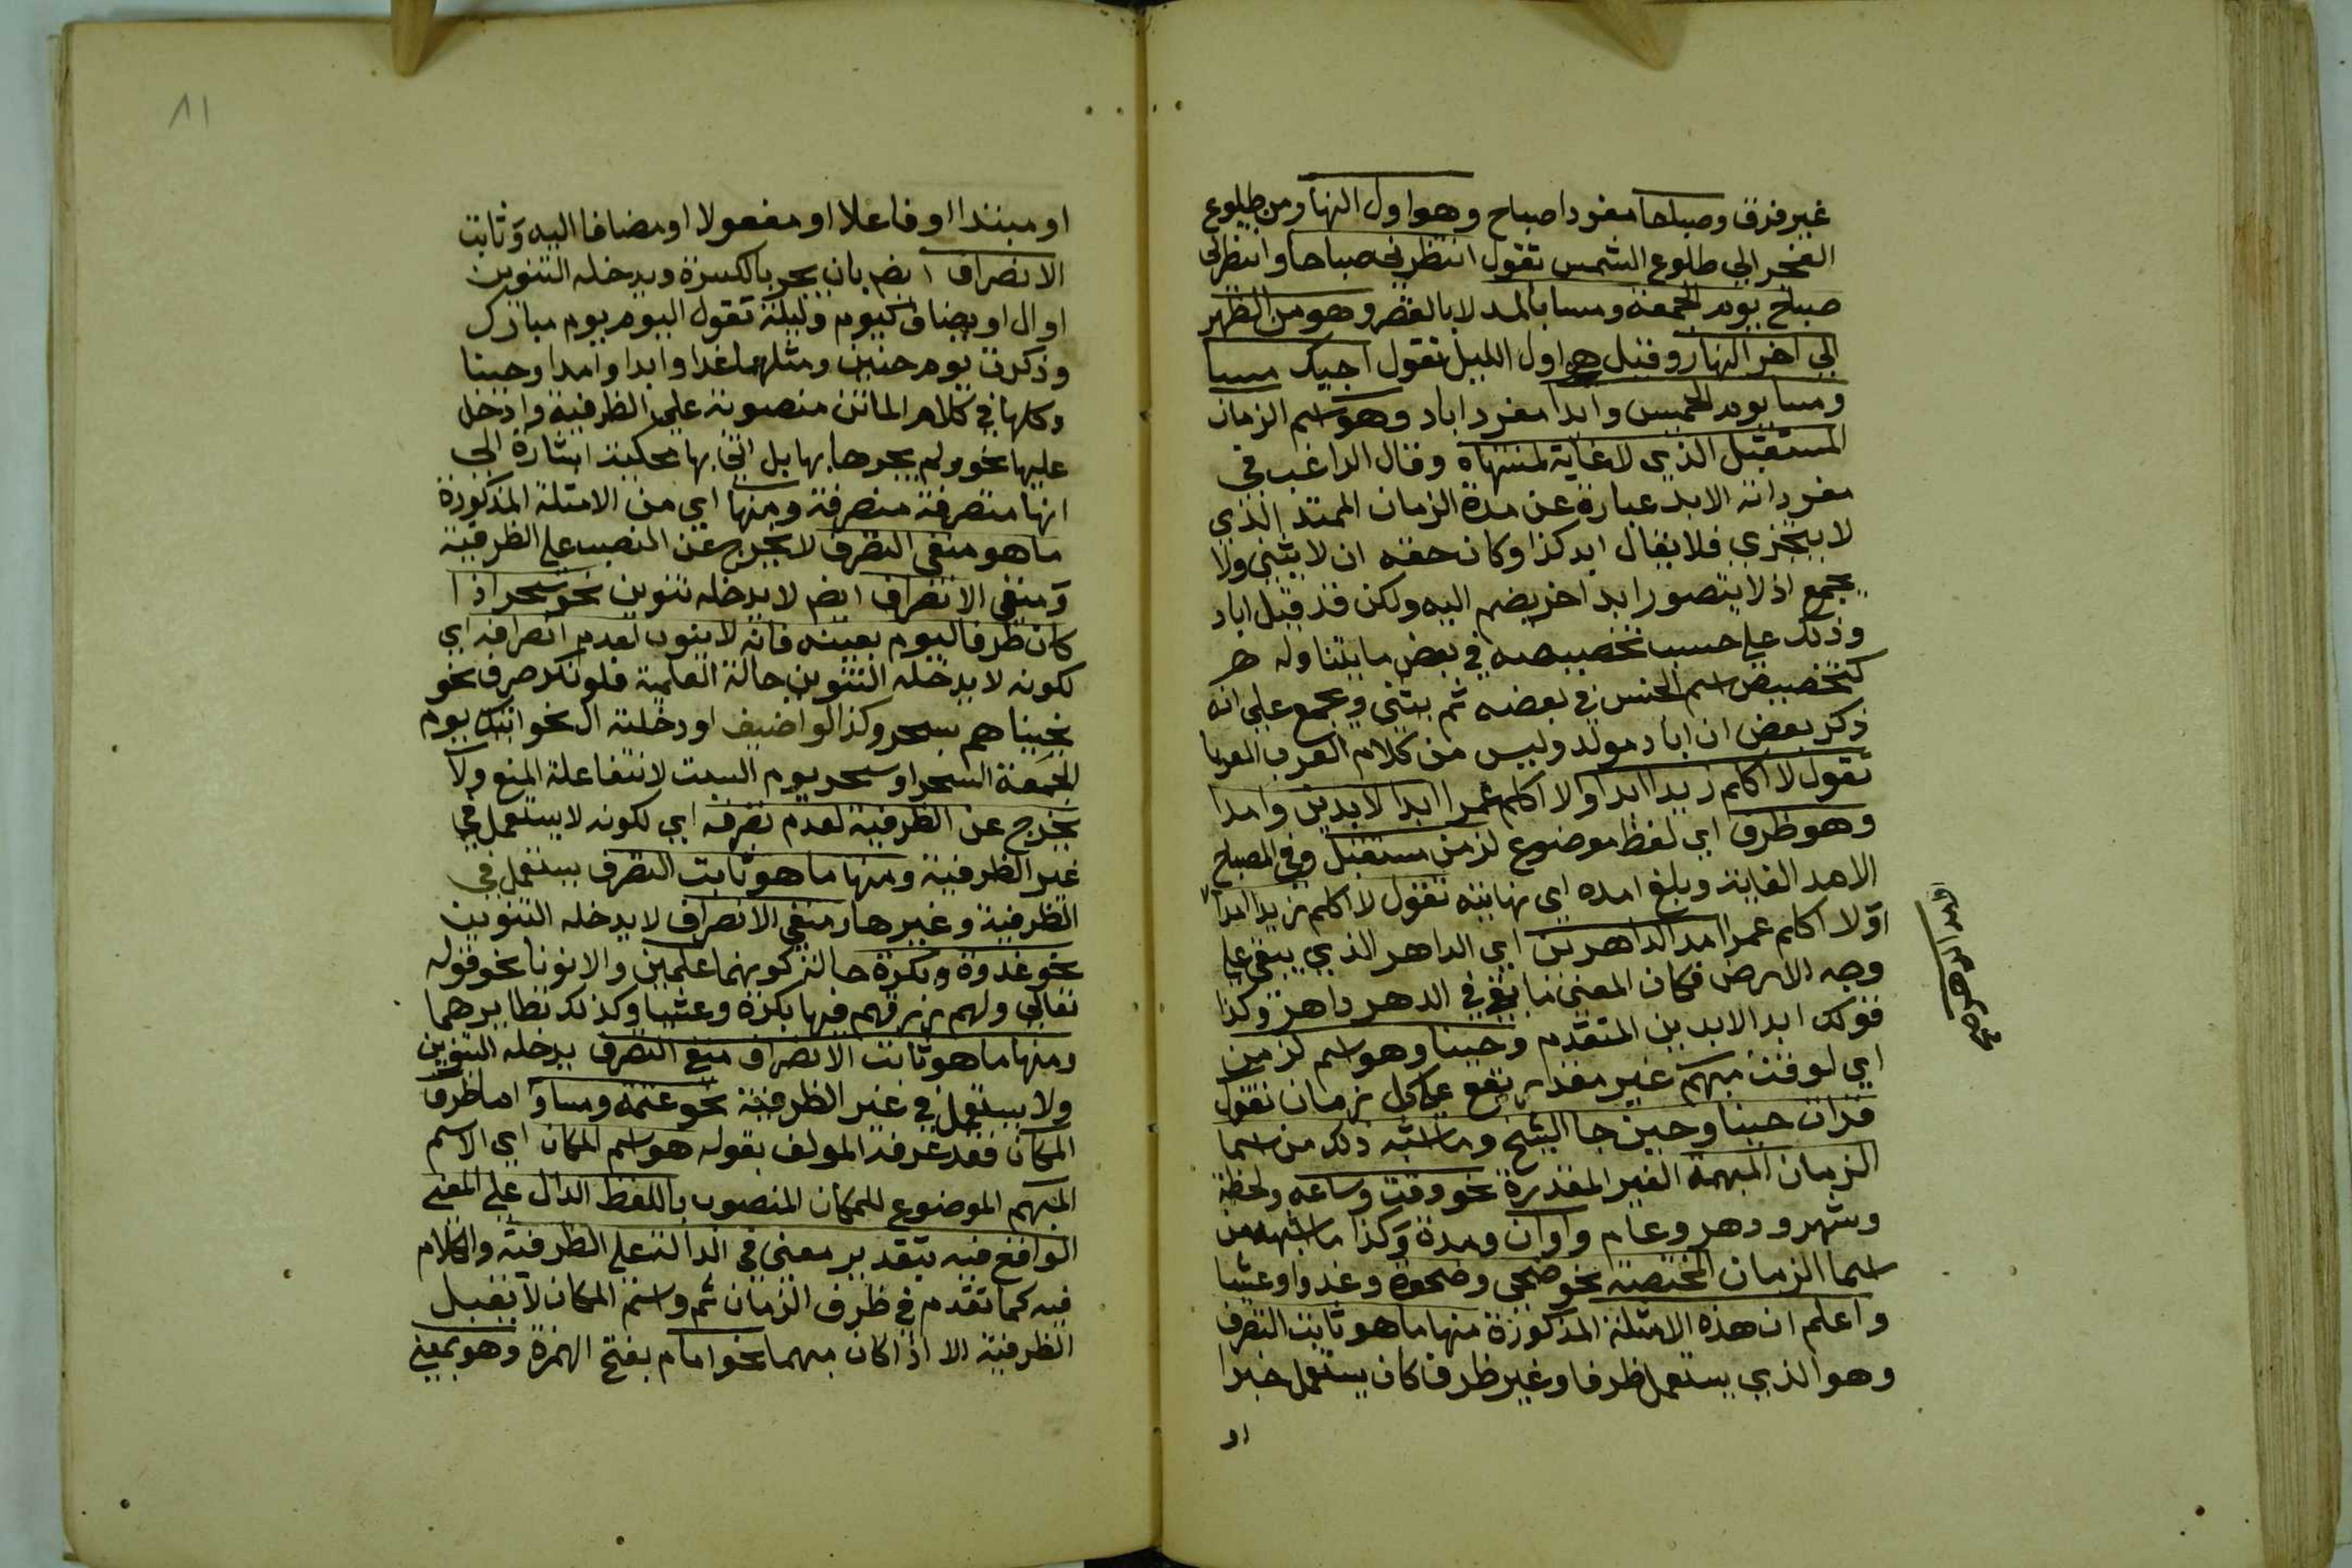 غير فرق وصباحا مفردا صباح وهو اول النهار من طلوع
الفجر الي طلوع الشمس تقول انتظرني صباحا وانتظرني
صباح يوم الجمعة ومسا بالمد لا بالقصر وهو من الظهر
الي اخر النهار وقيل هو اول الليل تقول اجيك مسا
ومسا يوم الخميس وابدا مفرد اباد وهو اسم الزمان
المستقبل الذي لا غاية لمنتهاه وقال الراغب في
مفرداته الابد عبارة عن مدة الزمان الممتد الذي
لا يتجزي فلا يقال ابد كذا وكان حقه ان لا يثني ولا
يجمع اذ لا يتصور ابد اخر يضم اليه ولكن قد قيل اباد
وذلك علي حسب تخصيصه في بعض ما يتناوله
كتخصيص اسم الجنس في بعضه ثم يثني ويجمع علي انه
ذكر بعض ان اباد مولد وليس من كلام العرب العربا
تقول لا اكلم زيدا ابدا او لا اكلم عمرا ابد الابدين وامدا
وهو ظرف اي لفظ موضوع لزمن مستقبل وفي المصباح
الامد الغاية وبلغ امده اي نهايته تقول لا اكلم زيدا امدا
او لا اكلم عمرا امد الداهرين اي الداهر الذي يبقي علي
وجه الارض فكان المعني ما بقي في الدهر داهر وكذا
قولك ابد الابدين المتقدم وحينا وهو اسم لزمن
اي لوقت مبهم غير مقدر يقع علي كل زمان تقول
قرات حينا وحين جا الشيخ وما اشبه ذلك من اسما
الزمان المبهمة الغير المقدرة نحو وقت وساعه ولحظة
وشهر ودهر وعام واوان ومدة وكذا ما اشبهه من
اسما الزمان المختصه نحو ضحي وضحوة وغدوا وعشيا
واعلم ان هذه الامثلة المذكورة منها ما هو ثابت التصرف
وهو الذي يستعمل ظرفا وغير ظرف كان يستعمل خبرا
او
امد الداهر صح
٨١
او مبتدا او فاعلا او مفعولا او مضافا اليه وثابت
الانصراف ايضم بان يجر بالكسرة ويدخله التنوين
او ال او يضاف كيوم وليلة تقول اليوم يوم مبارك
وذكرت يوم حنين ومثلهما غدا وابدا وامدا وحينا
وكلها في كلام الماتن منصوبة علي الظرفية وادخل
عليها نحو ولم يجرها بها بل اتي بها محكية اشارة الي
انها متصرفة منصرفة ومنها اي من الامثلة المذكورة
ما هو منفي التصرف لا يخرج عن النصب علي الظرفية
ومنفي الانصراف ايضم لا يدخله تنوين نحو سحر اذا
كان ظرفا ليوم بعينه فانه لا ينون لعدم انصرافه اي
لكونه لا يدخله التنوين حالة العلمية فلو نكر صرف نحو
نجيناهم بسحر وكذا لو اضيف او دخلته ال نحو اتيتك يوم
الجمعة السحر او سحر يوم السبت لانتفا علة المنع ولا
يخرج عن الظرفية لعدم تصرفه اي لكونه لا يستعمل في
غير الظرفية ومنها ما هو ثابت التصرف يستعمل في
الظرفية وغيرها ومنفي الانصراف لا يدخله التنوين
نحو غدوة وبكرة حالة كونهما علمين والا نونا نحو قوله
تعالي ولهم رزقهم فيها بكرة وعشيا وكذلك نظايرهما
ومنها ما هو ثابت الانصراف منفي التصرف يدخله التنوين
ولا يستعمل في غير الظرفية نحو عتمه ومسا واما ظرف
المكان فقد عرفه المولف بقوله هو اسم المكان اي الاسم
المبهم الموضوع للمكان المنصوب باللفظ الدال علي المعني
الواقع فيه بتقدير معني في الدالة علي الظرفية والكلام
فيه كما تقدم في ظرف الزمان ثم واسم المكان لا يقبل
الظرفية الا اذا كان مبهما نحو امام بفتح الهمزة وهو بمعني